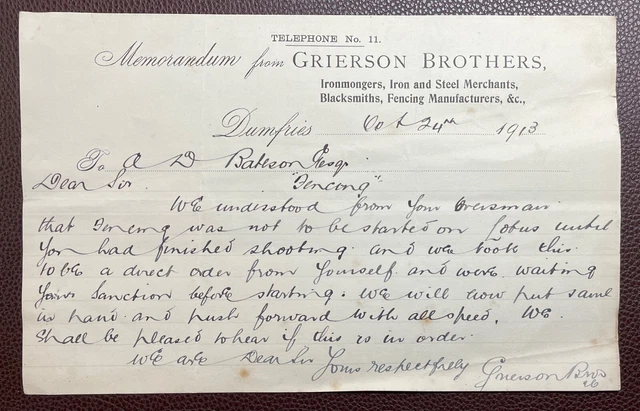 TELEPHONE No. 11.
Memorandum from GRIERSON BROTHERS,
Ironmongers, Iron and Steel Merchants,
Blacksmiths, Fencing Manufacturers, &c.,
Dumfries Oct 24th 1913
To A D Bateson Esqr
Dear Sir "Fencing"
We understood from your
that Fencing was not to be started on Lotus until
you had finished shooting. and we took this
to be a direct order from yourself and were waiting
your Sanction before starting. We will now put same
in hand and push forward with all speed. We
Shall be pleased to hear if this is in order.
We are Dear Sir Yours respectfully
Grierson Bros